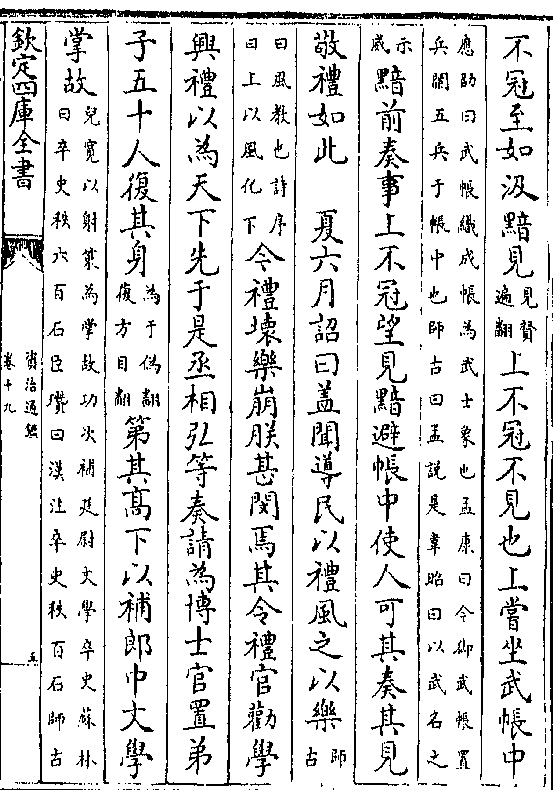 不冠至如汲黯見見賢遍翻上不冠不見也上嘗坐武帳中
應劭曰武帳織成帳為武士象也孟康曰今御武帳置
兵闌五兵于帳中也師古曰孟說是韋昭曰以武名之
示威黯前奏事上不冠望見黯避帳中使人可其奏其見
敬禮如此 夏六月詔曰蓋聞導民以禮風之以樂師古
曰風教也詩序曰上以風化下今禮壞樂崩朕甚閔焉其令禮官勸學
興禮以為天下先于是丞相弘等奏請為博士官置弟
子五十人復其身為于偽翻復方目翻第其高下以補郎中文學
掌故兒寛以射策為掌故功次補廷尉文學卒史蘇林曰卒史秩六百石臣瓚曰漢注卒史秩百石師古
欽定四庫全書
資治通鑑
卷十九
五